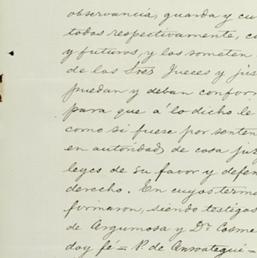 observancia, guarda y cu
todos respectivamente, c
y futuros, y los someten
de los Sres Jueces y jus
puedan y deban conform
para que á lo dicho le
como si fuese por senten
en autoridad de cosa juz
leyes de su favor y defen
derecho. En cuyos termi
firmaron, siendo testigos
de Argumosa y Dn Cosme
doy fé = P. de Anrotegui =